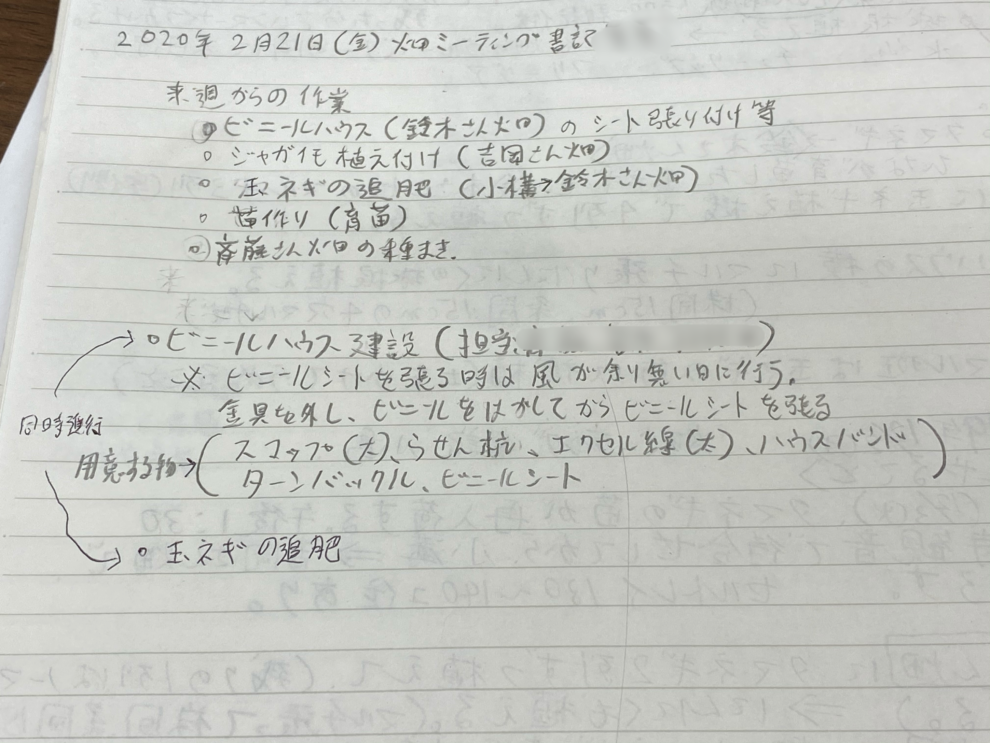 2020年 2月21日(金) 畑ミーティング 書記
来週からの作業
◦ビニールハウス(鈴木さん畑)のシート張り付け等
◦ジャガイモ植え付け(吉岡さん畑)
◦玉ネギの追肥(小溝→鈴木さん畑)
◦苗作り(育苗)
◦斉藤さん畑の種まき.
◦ビニールハウス建設(担当:
※ ビニールシートを張る時は風が余り無い日に行う。
金具を外し、ビニールをはがしてからビニールシートを張る
同時進行
用意する物→(スコップ(大)、らせん杭、エクセル線(太)、ハウスバンド
ターンバックル、ビニールシート)
◦玉ネギの追肥